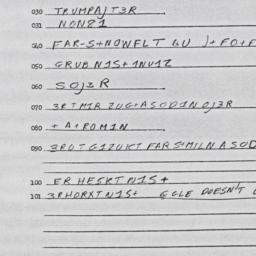 030 TRUMPAJT3R
031 NON81
040 FAR-S+NOWFLT 4U )+FO+F
050 GRUB N1S+ 1NV1Z
060 SOJ3R
070 3RTM1R ZUG+ASOD1NOJ3R
080 +A+ROM1N
090 3ROTG1ZUKT FARSMILNASOD
100 ER HESKT N1S+
101 3RHORXTN1S+ GCLE DOESN'T